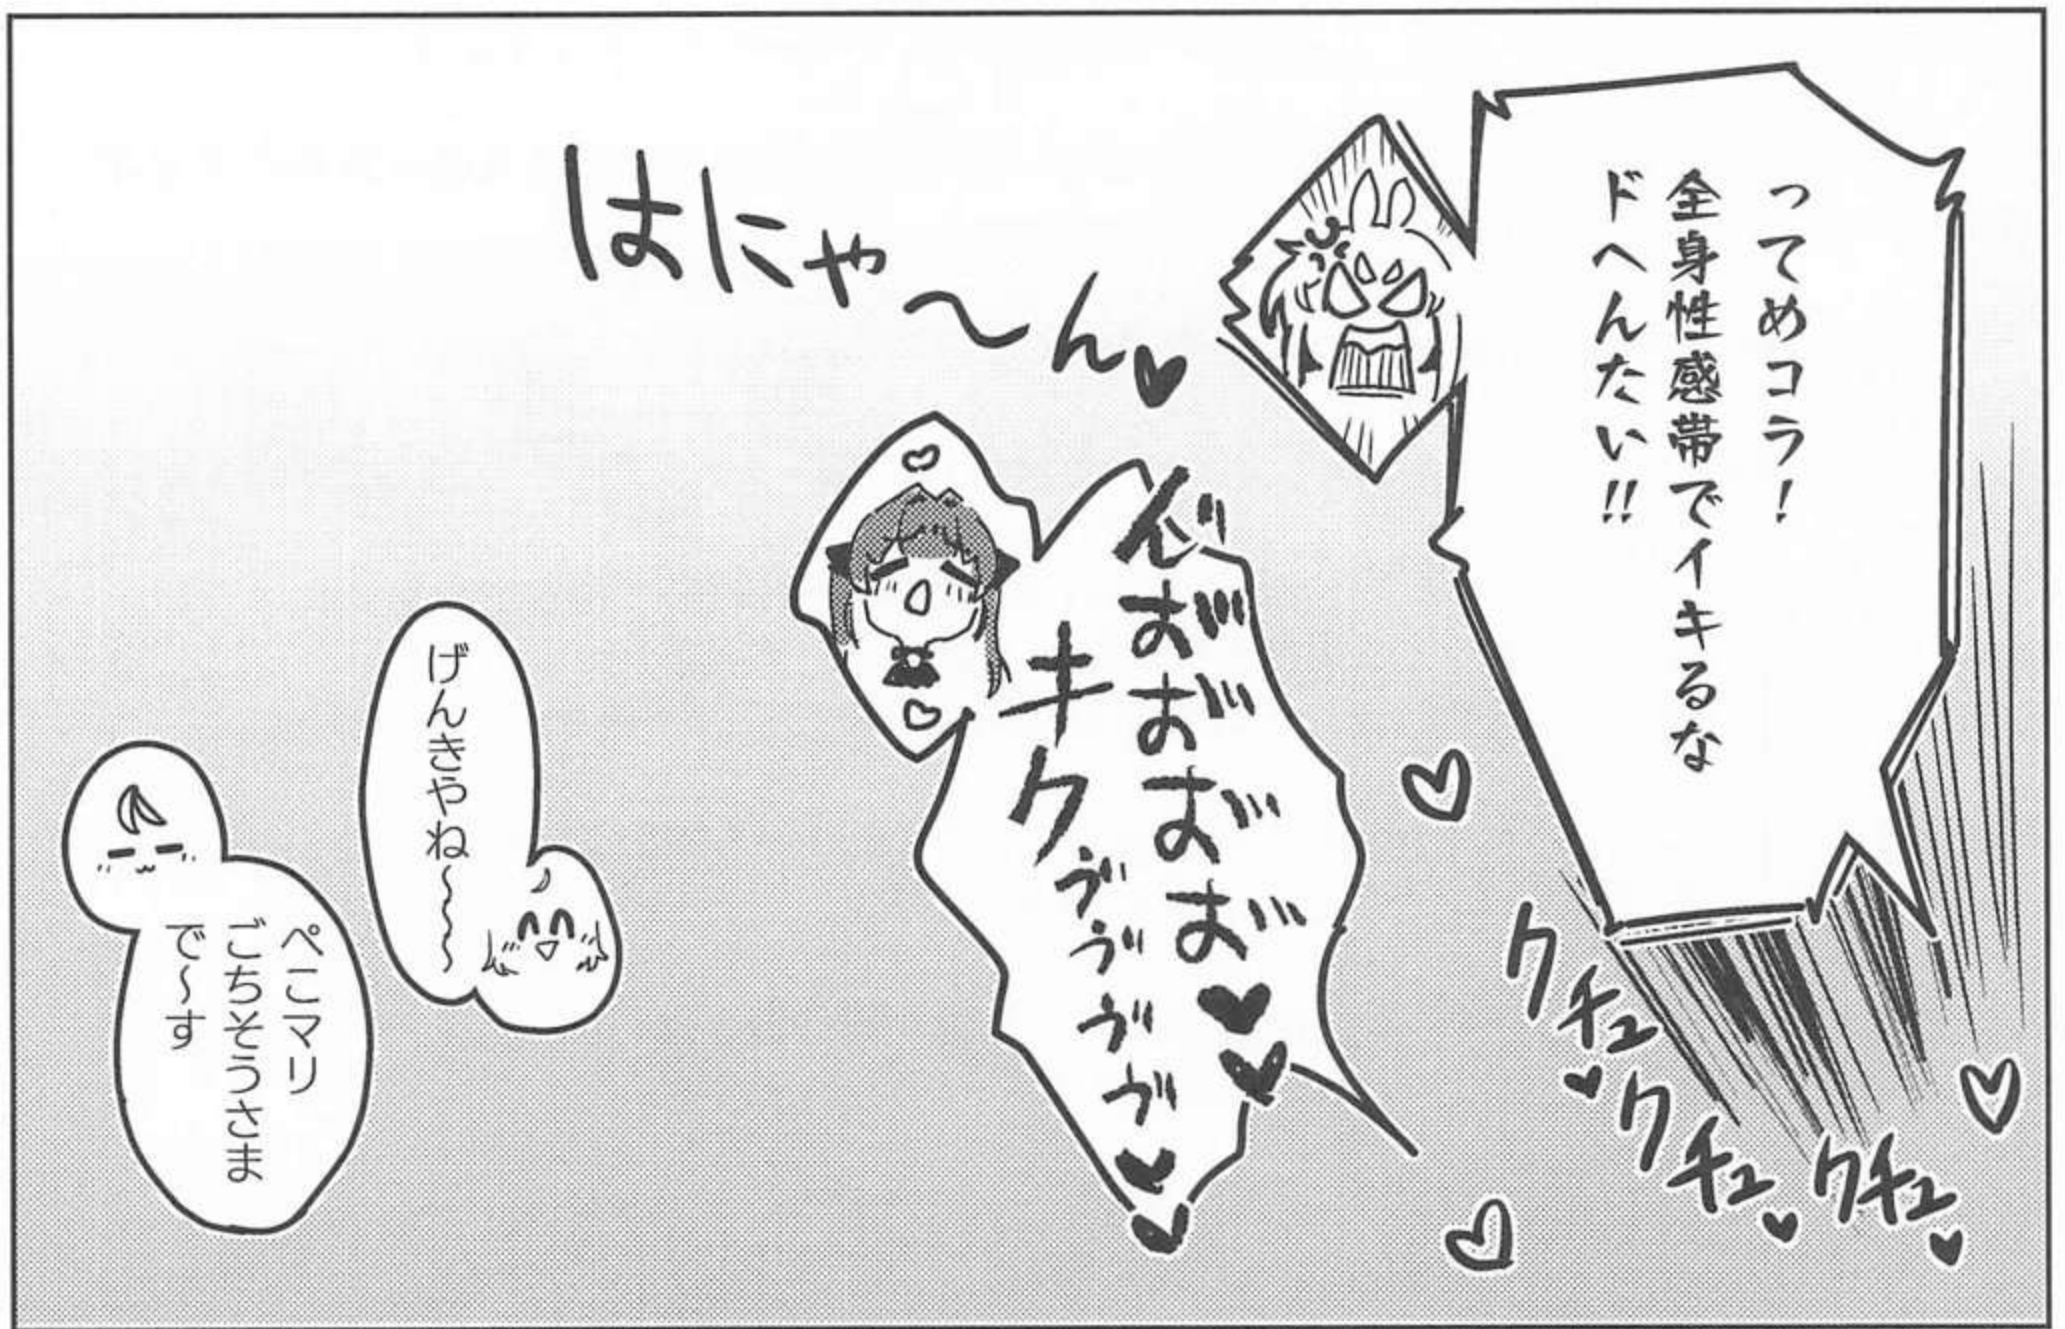 ってめコラ!
全身性感帯でイキるな
ドへんたい!!
はにゃ〜ん♥
おおおお♥♥
キクゔゔゔゔ♥♥
クチュ♥
クチュ♥
クチュ♥
げんきやね〜〜〜
ぺこマリ
ごちそうさま
で〜す